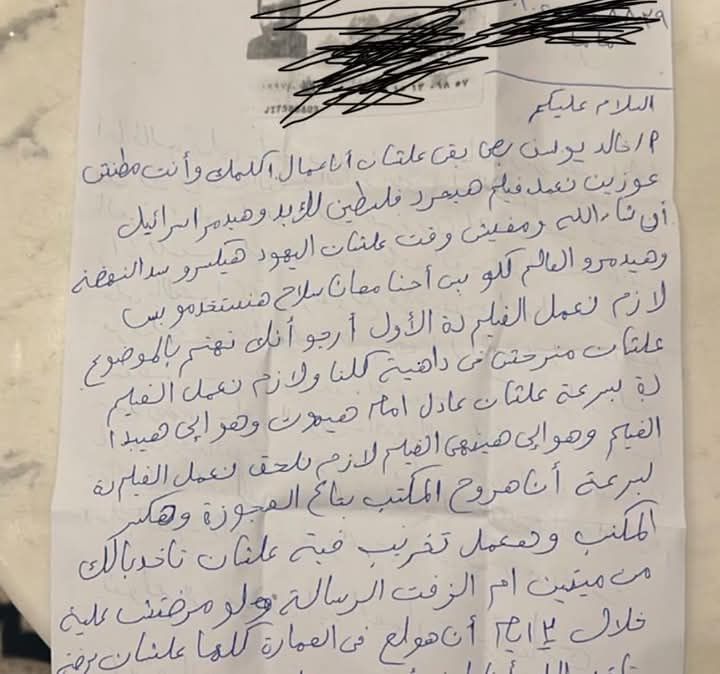 السلام عليكم
م/ خالد يوسف بص بقى علشان أنا عمال اكلمك وأنت مطنش
عوزين نعمل فيلم هيحرر فلسطين للأبد وهيدمر اسرائيل
أن شاءالله ومفيش وقت علشان اليهود هيكسرو سد النهضة
وهيدمرو العالم كلو بس أحنا معانا سلاح هنستخدمو بس
لازم نعمل الفيلم دة الأول أرجو أنك تهتم بالموضوع
علشان منرحش فى داهية كلنا ولازم نعمل الفيلم
دة بسرعة علشان عادل امام هيموت وهو إلى هيبدأ
الفيلم وهو إلى هينهى الفيلم لازم نلحق نعمل الفيلم دة
بسرعة أنا هروح المكتب بتاع العجوزة وهكسر
المكتب وهعمل تخريب فية علشان تاخد بالك
من ميتين ام الزفت الرسالة ولو مردتش علية
خلال ٢ ايام أنا هولع فى العمارة كلها علشان